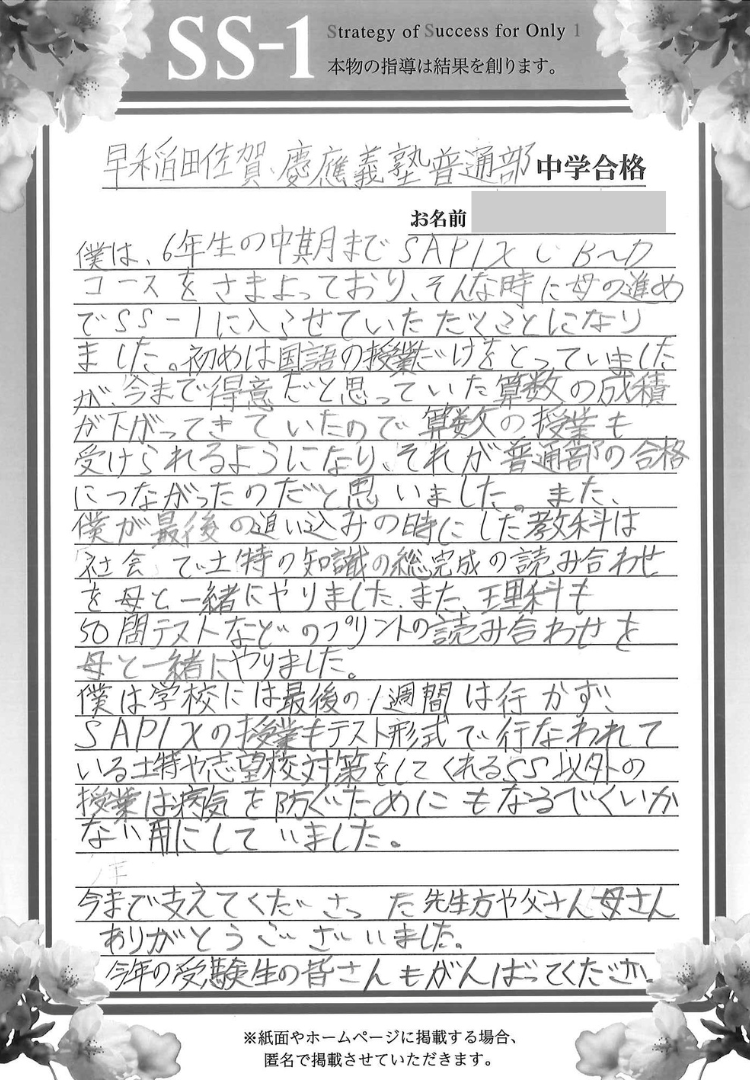 SS-1
Strategy of Success for Only 1
本物の指導は結果を創ります。
早稲田佐賀、慶應義塾普通部 中学合格
お名前
僕は、6年生の中期までSAPIXしB〜D
コースをさまよっており、そんな時に母の進め
でSS-1に入らせていただくことになり
ました。初めは国語の授業だけをとっていました
が、今まで得意だと思っていた算数の成積
が下がってきていたので算数の授業も
受けられるようになり、それが普通部の合格
につながったのだと思いました。また、
僕が最後の追い込みの時にした教科は
社会で土特の知識の総完成の読み合わせ
を母と一緒にやりました。また、理科も
50問テストなどのプリントの読み合わせを
母と一緒にやりました。
僕は学校には最後の1週間は行かず、
SAPIXの授業もテスト形式で行なわれて
いる土特や志望校対策をしてくれるSS以外の
授業は病気を防ぐためにもなるべくいか
ない用にしていました。
今まで支えてくださった先生方や父さん母さん
ありがとうございました。
今年の受験生の皆さんもがんばってください。
※紙面やホームページに掲載する場合、
匿名で掲載させていただきます。